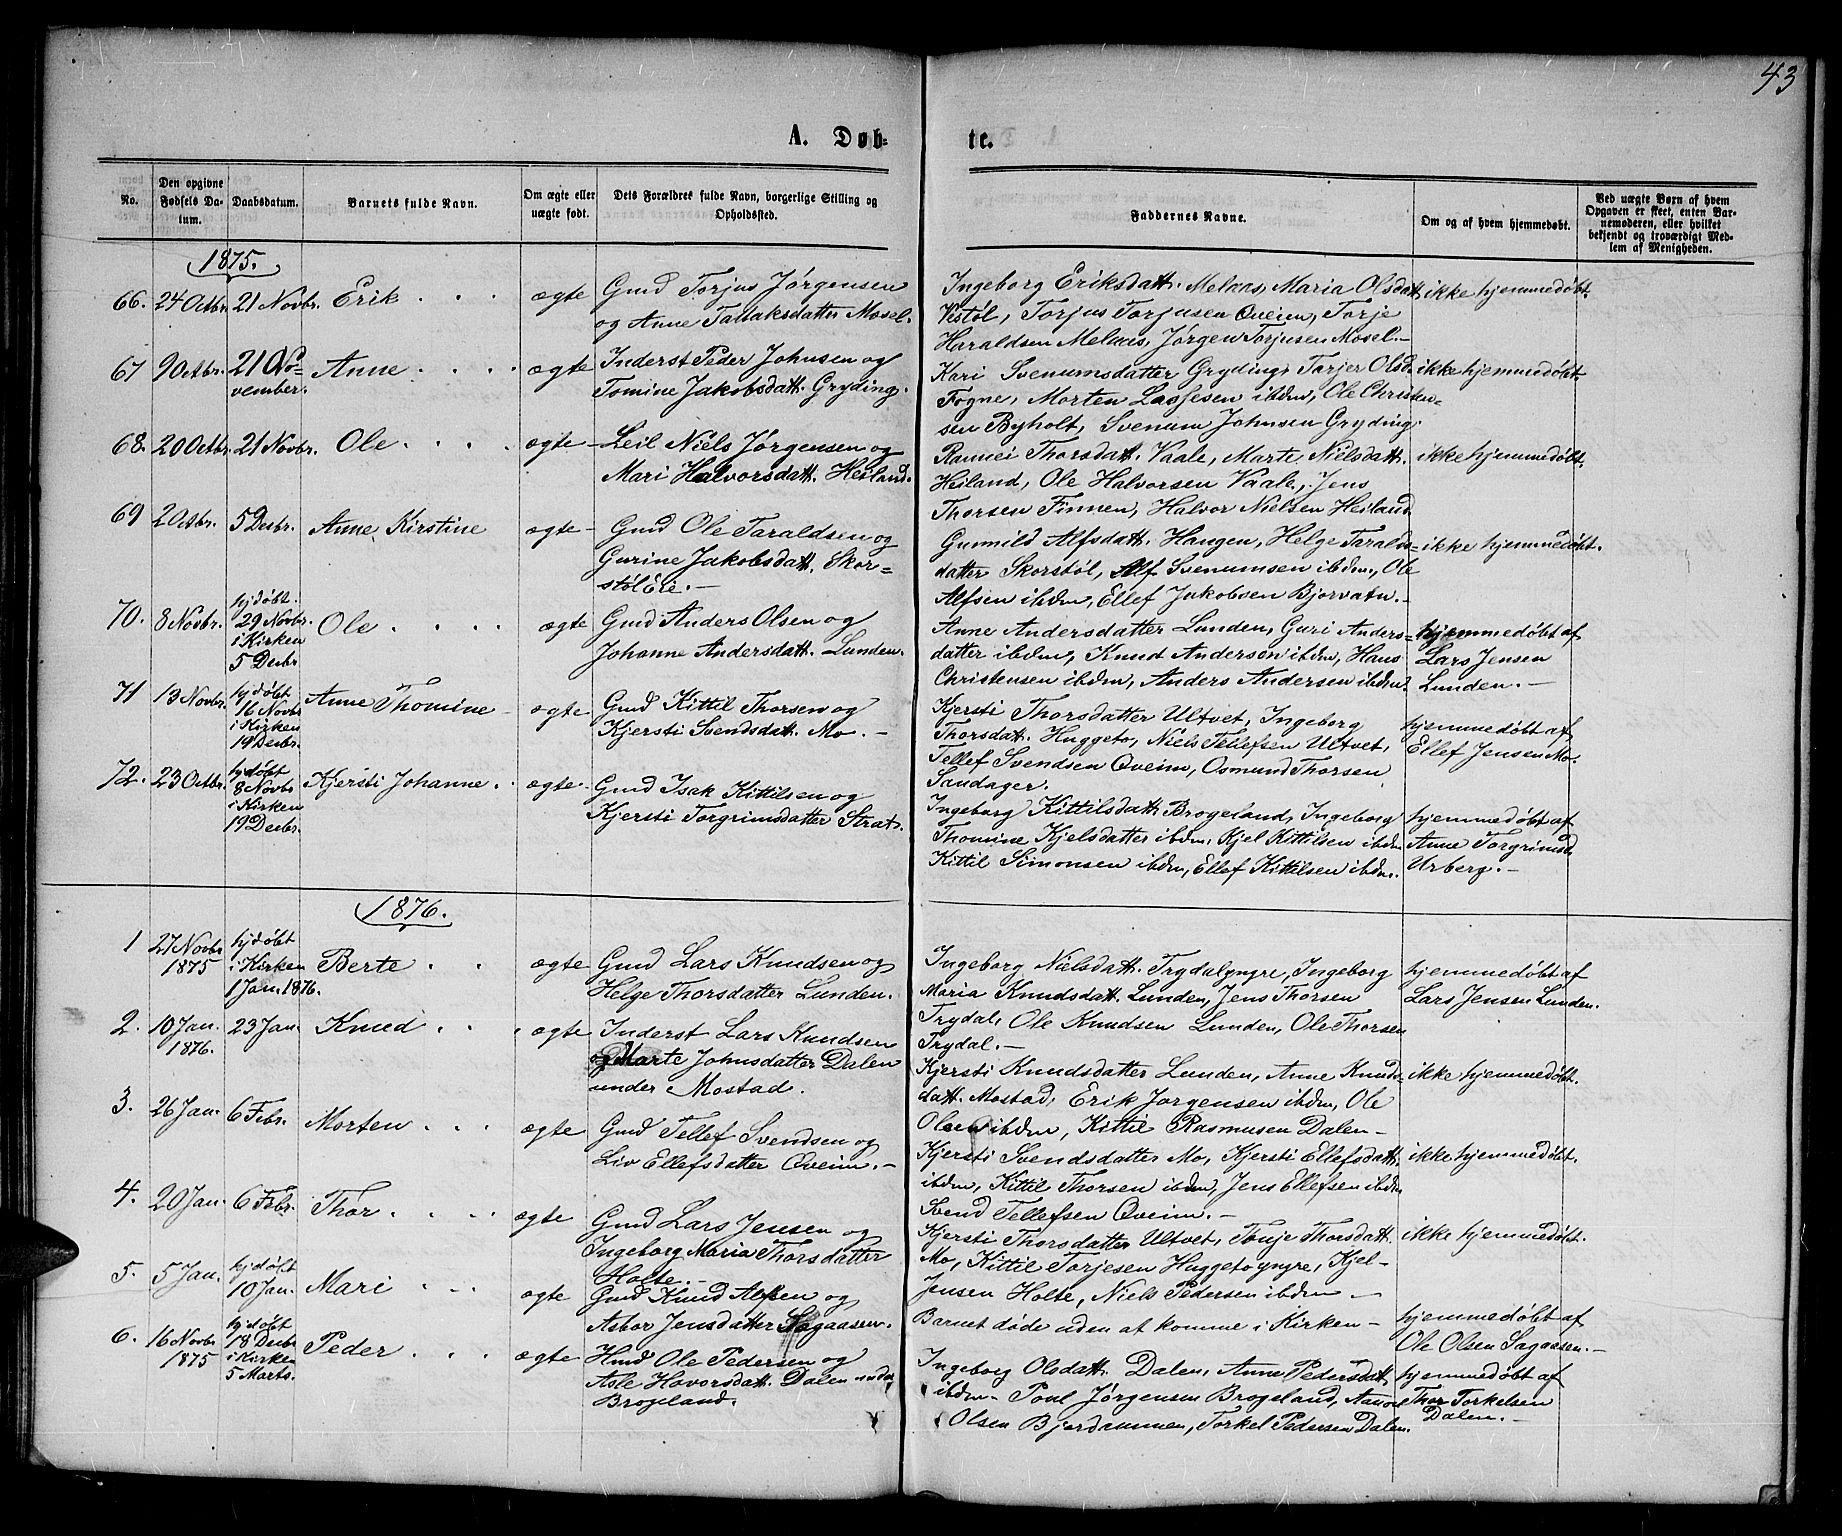 43
A. Døbte.
No.
Den opgivne Fødsels Datum.
Daabsdatum.
Barnets fulde Navn.
Om ægte eller uægte født.
Dets Forældres fulde Navn, borgerlige Stilling og Opholdssted.
Faddernes Navne.
Om og af hvem hjemmedøbt.
Ved uægte Børn af hvem Opgaven er skeet, enten Barnemoderen, eller hvilket bekjendt og troværdigt Medlem af Menigheden.
1875.
66. 24 Octbr. 21 Novbr. Erik ægte
Gmd Torjus Jørgensen
og Anne Tallaksdatter Mosel.
Ingeborg Eriksdatt. Melaas, Maria Olsdatt.
Vestøl, Torjus Torjusen Øveien, Torje
Haraldsen Melaas, Jørgen Torjusen Mosel.-
ikke hjemmedøbt.
67 9 Octbr. 21 November. Anne ægte
Inderst Peder Johnsen og
Tomine Jakobsdatt. Gryding.
Kari Svenumsdatter Gryding, Torjer Olsd.
Fogne, Morten Lassesen ibdm, Ole Christen=
sen Byholt, Svenum Johnsen Gryding.
ikke hjemmedøbt.
68. 20 Octbr. 21 Novbr. Ole ægte
Leil Niels Jørgensen og
Mari Halvorsdatt. Heiland.
Rannei Thorsdatt. Vaale, Marte Nielsdatt.
Heiland, Ole Halvorsen Vaale, Jens
Thorsen Finnen, Halvor Nielsen Heiland
ikke hjemmedøbt.
69 2 Octbr. 5 Decbr. Anne Kirstine ægte
Gmd Ole Taraldsen og
Gurine Jakobsdatt. Skor=
støl Eie.-
Gunnild Alfsdatt. Haugen, Helge Taralds=
datter Skorstøl, Alf Svenumsen ibdm, Ole
Alfsen ibdm, Ellef Jakobsen Bjorvatn.-
ikke hjemmedøbt.
70. 8 Novbr. hjdøbt. 29 Novbr. i Kirken 5 Decbr Ole ægte
Gmd Anders Olsen og
Johanne Andersdatt. Lunden.
Anne Andersdatter Lunden, Guri Anders=
datter ibdm, Knud Andersen ibdm, Hans
Christensen ibdm, Anders Andersen ibdm.
hjemmedøbt af
Lars Jensen
Lunden.-
71 13 Novbr. hjdøbt 16 Novbr i Kirken 19 Decbr. Anne Thomine ægte
Gmd Kittil Thorsen og
Kjersti Svendsdatt. Mo.-
Kjersti Thorsdatter Ultvet, Ingeborg
Thorsdatt. Huggeto, Niels Tellefsen Ultvet,
Tellef Svendsen Øveim, Osmund Thorsen
Sandager.
hjemmedøbt af
Ellef Jensen Mo.
72. 23 Octbr. hjdøbt 8 Novbr i Kirken 19 Decbr. Kjersti Johanne ægte
Gmd Isak Kittilsen og
Kjersti Torgrimsdatter Strat.
Ingeborg Kittilsdatt. Brogeland, Ingeborg
Thomine Kjelsdatter ibdm, Kjel Kittilsen ibdm
Kittil Simonsen ibdm, Ellef Kittilsen ibdm.
hjemmedøbt af
Anne Torgrimsd.
Urberg.-
1876.
1 27 Novbr 1875 hjdøbt i Kirken 1 Jan. 1876. Berte ægte
Gmd Lars Knudsen og
Helge Thorsdatter Lunden.
Ingeborg Nielsdatt. Trydalyngre, Ingeborg
Maria Knudsdatt. Lunden, Jens Thorsen
Trydal, Ole Knudsen Lunden, Ole Thorsen
Trydal.-
hjemmedøbt af
Lars Jensen Lunden.
2. 10 Jan. 1876. 23 Jan. Knud ægte
Inderst Lars Knudsen
og Marte Johnsdatter Dalen
under Mostad.
Kjersti Knudsdatter Lunden, Anne Knuds=
datt. Mostad, Erik Jørgensen ibdm, Ole
Olsen ibdm, Kittil Rasmusen Dalen-
ikke hjemmedøbt.
3. 26 Jan. 6 Febr. Morten ægte
Gmd Tellef Svendsen og
Liv Ellefsdatter Øveim.-
Kjersti Svendsdatter Mo, Kjersti Ellefsdatt.
ibdm, Kittil Thorsen ibdm, Jens Ellefsen ibdm
Svend Tellefsen Øveim.-
ikke hjemmedøbt.
4. 20 Jan. 6 Febr. Thor ægte
Gmd Lars Jensen og
Ingeborg Maria Thorsdatter
Holte.-
Kjersti Thorsdatter Ultvet, Tonje Thorsdatt.
Mo, Kittil Torjesen Huggetoyngre, Kjel-
Jensen Holte, Niels Pedersen ibdm-
ikke hjemmedøbt.
5. 5 Jan. hjdøbt 10 Jan. Mari ægte
Gmd Knud Alfsen og
Asbor Jensdatter Sagaasen.
Barnet døde uden at komme i Kirken-
hjemmedøbt af
Ole Olsen Sagaasen.-
6. 16 Novbr 1875 hjdøbt 18 Decbr i Kirken 5 Marts. Peder ægte
Hmd Ole Pedersen og
Asle Havorsdatt. Dalen under
Brogeland.
Ingeborg Olsdatt. Dalen, Anne Pedersdatt.
ibdm- Poul Jørgensen Brogeland, Aanon
Olsen Bjordammen, Torkel Pedersen Dalen.
hjemmedøbt af
Thor Torkelsen
Dalen.-